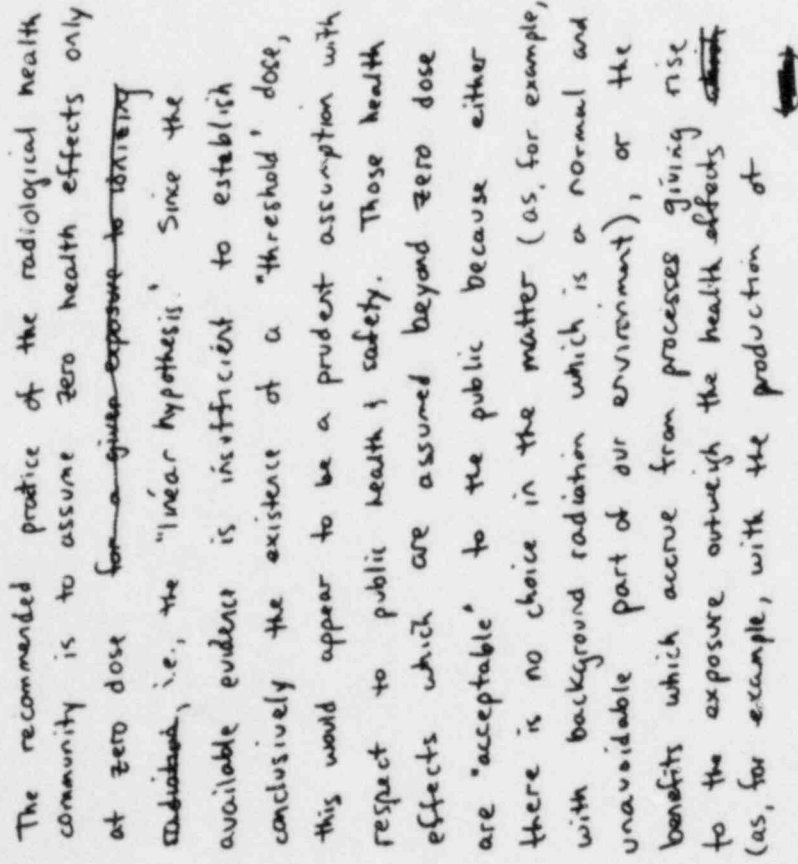 The recommended practice of the radiological health
community is to assume zero health effects only
at zero dose for a given exposure to ionizing
radiation, i.e., the "linear hypothesis." Since the
available evidence is insufficient to establish
conclusively the existence of a "threshold" dose,
this would appear to be a prudent assumption with
respect to public health & safety. Those health
effects which are assumed beyond zero dose
are "acceptable" to the public because either
there is no choice in the matter (as, for example,
with background radiation which is a normal and
unavoidable part of our environment), or the
benefits which accrue from processes giving rise
to the exposure outweigh the health effects
(as, for example, with the production of